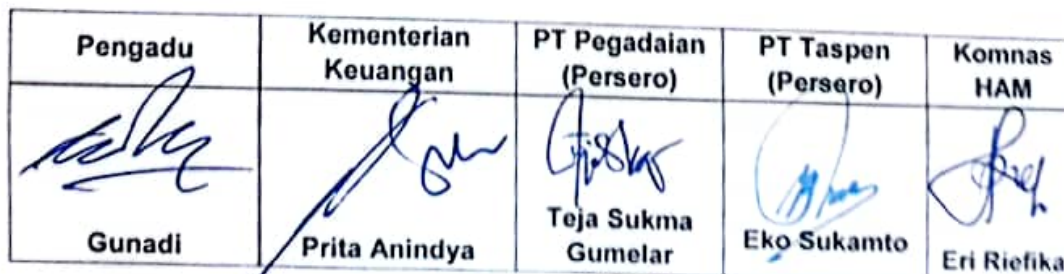 Pengadu
Kementerian
Keuangan
PT Pegadaian
(Persero)
PT Taspen
(Persero)
Komnas
HAM
Gunadi
Prita Anindya
Teja Sukma
Gumelar
Eko Sukamto
Eri Riefika